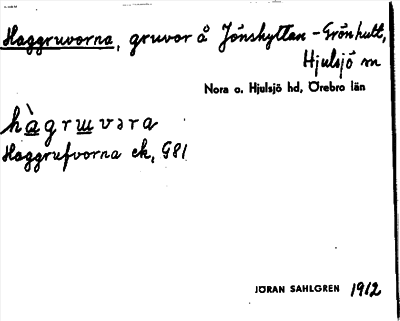 Haggruvorna, gruvor å Jönshyttan - Grönhult,
Hjulsjö sn
Nora o. Hjulsjö hd, Örebro län
hàgrɯvəra
Haggrufvorna ek, G81
JÖRAN SAHLGREN 1912